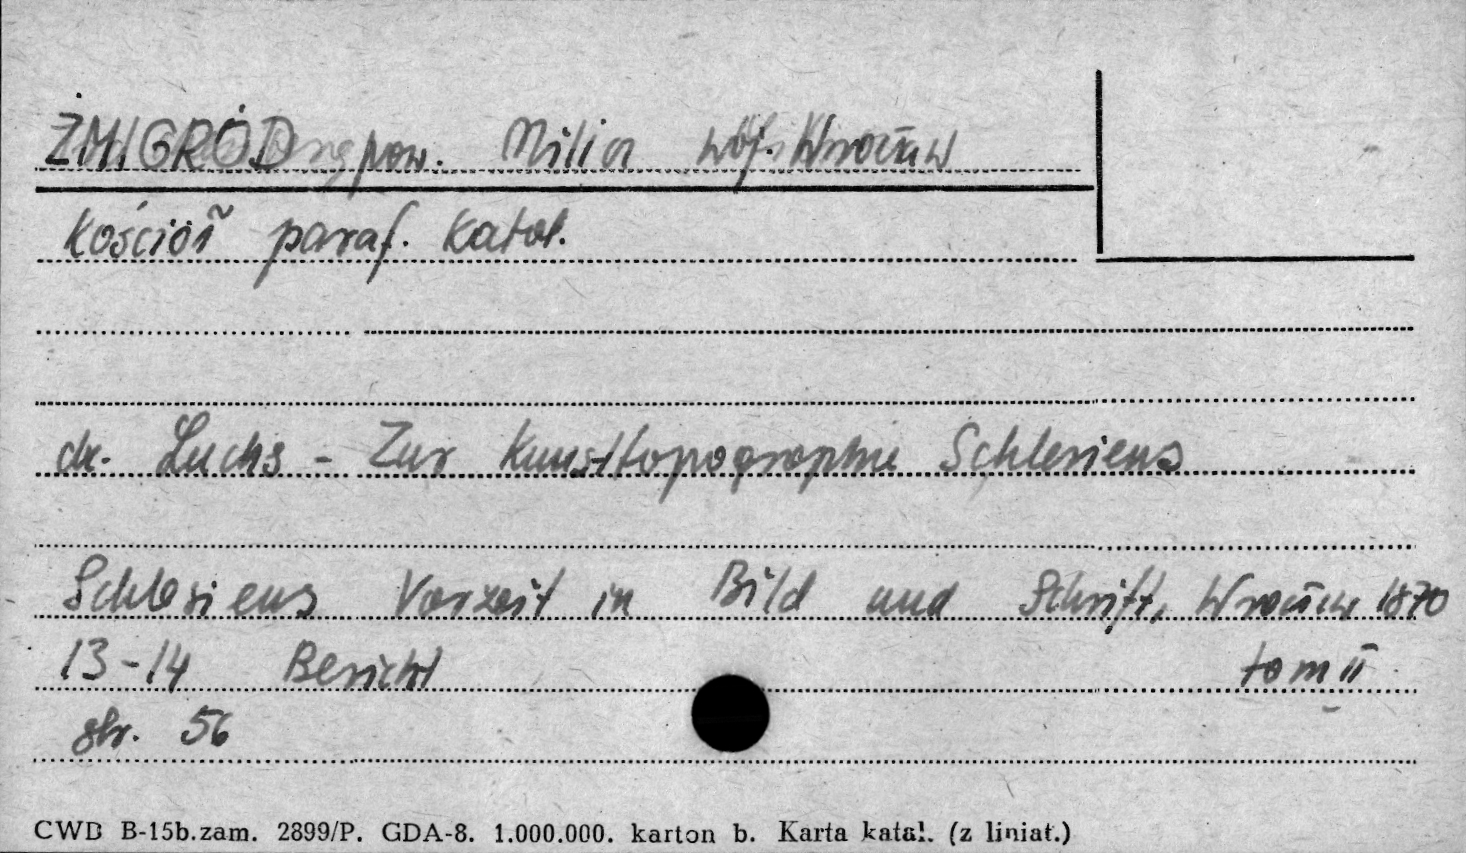 ŻMIGRÓD pow. Milicz woj. Wrocław
Kościół paraf. katol.
dr. Luchs - Zur Kunsttopographie Schlesiens
Schlesiens Vorzeit in Bild und Schrift, Wrocław 1870
13-14 Bericht tom II
str. 56
CWD B-15b.zam. 2899/P. GDA-8. 1.000.000. karton b. Karta katal. (z liniat.)